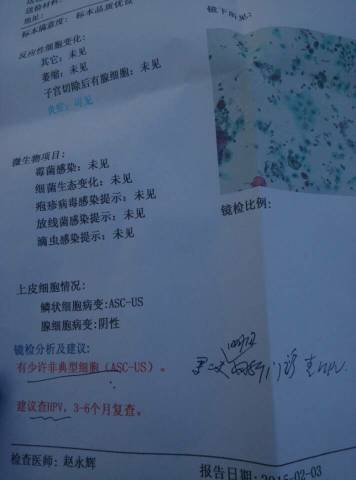 送检材料:
地址:
标本满意度: 标本品质优良
镜下所见:
反应性细胞变化:
其它: 未见
萎缩: 未见
子宫切除后有腺细胞: 未见
炎症: 可见
微生物项目:
霉菌感染: 未见
细菌生态变化: 未见
疱疹病毒感染提示: 未见
放线菌感染提示: 未见
滴虫感染提示: 未见
镜检比例:
上皮细胞情况:
鳞状细胞病变:ASC-US
腺细胞病变:阴性
镜检分析及建议:
有少许非典型细胞（ASC-US）。
查HPV
建议查HPV, 3-6个月复查。
检查医师: 赵永辉
报告日期:2015-02-03